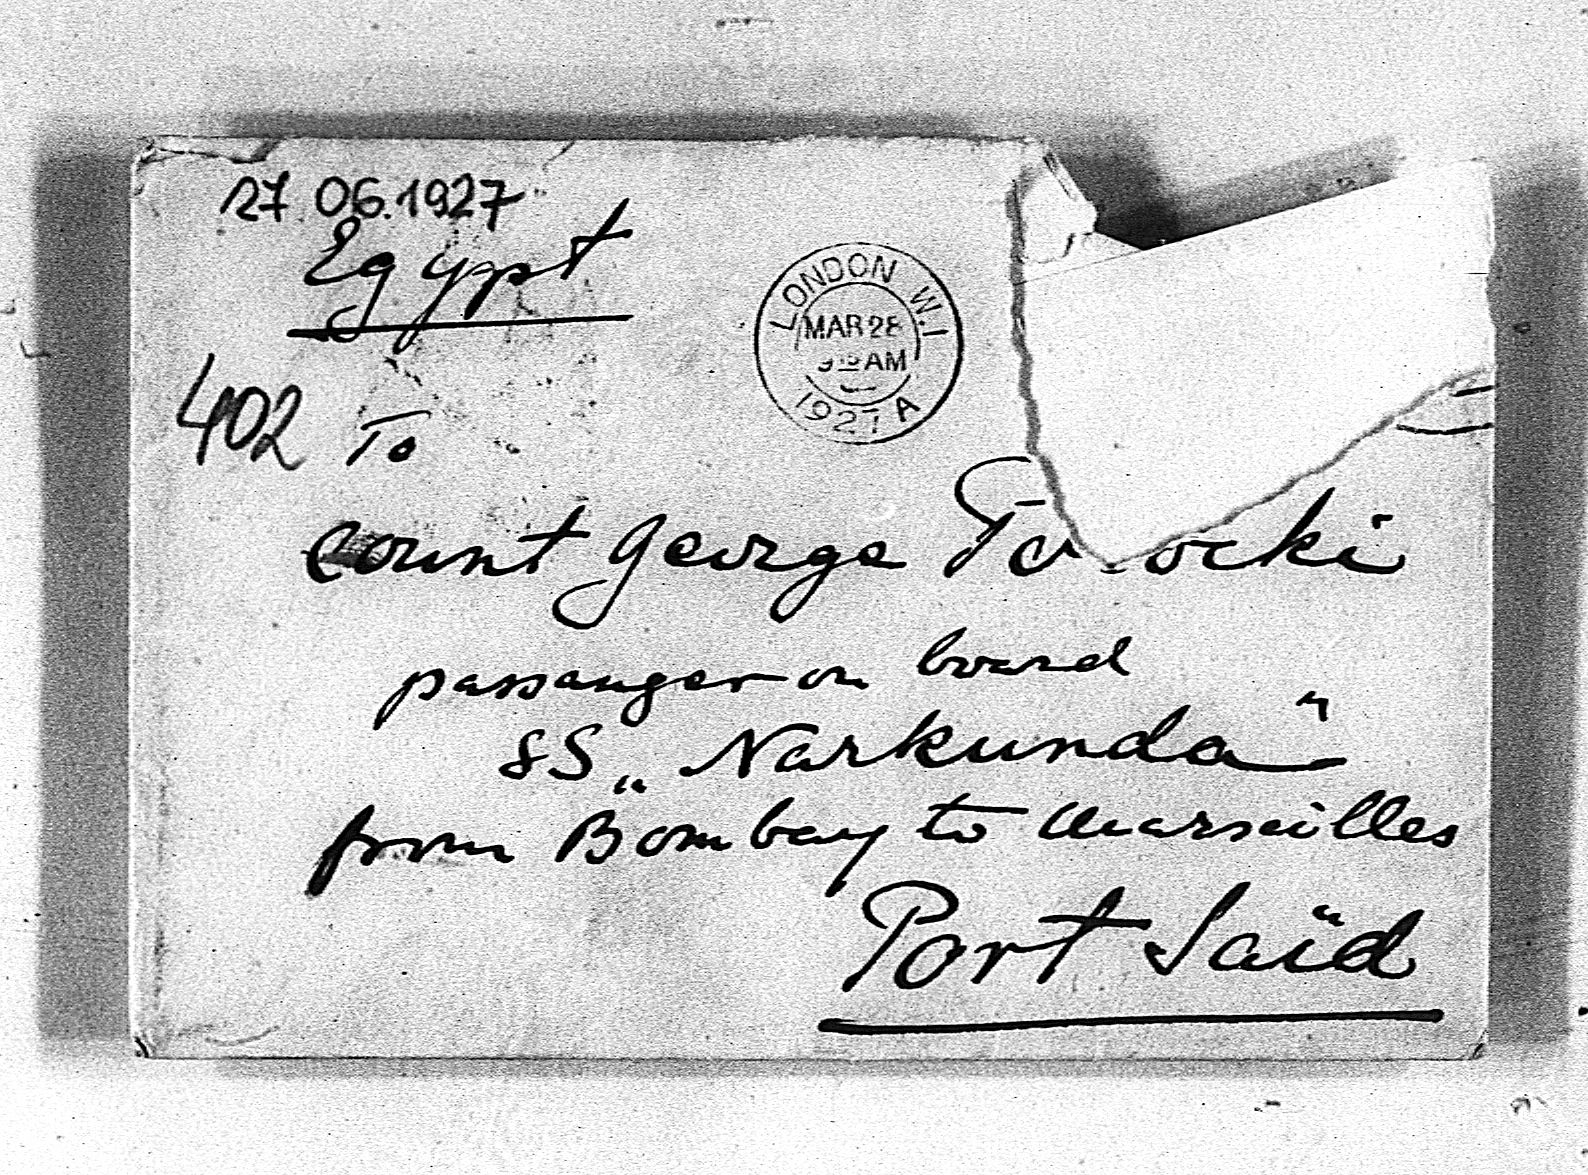 27.06.1927
Egypt
LONDON W.1
MAR 28
AM
1927 A
402 To
count George
passanger on board
SS „Narkunda"
from Bombay to Marseilles
Port Saïd